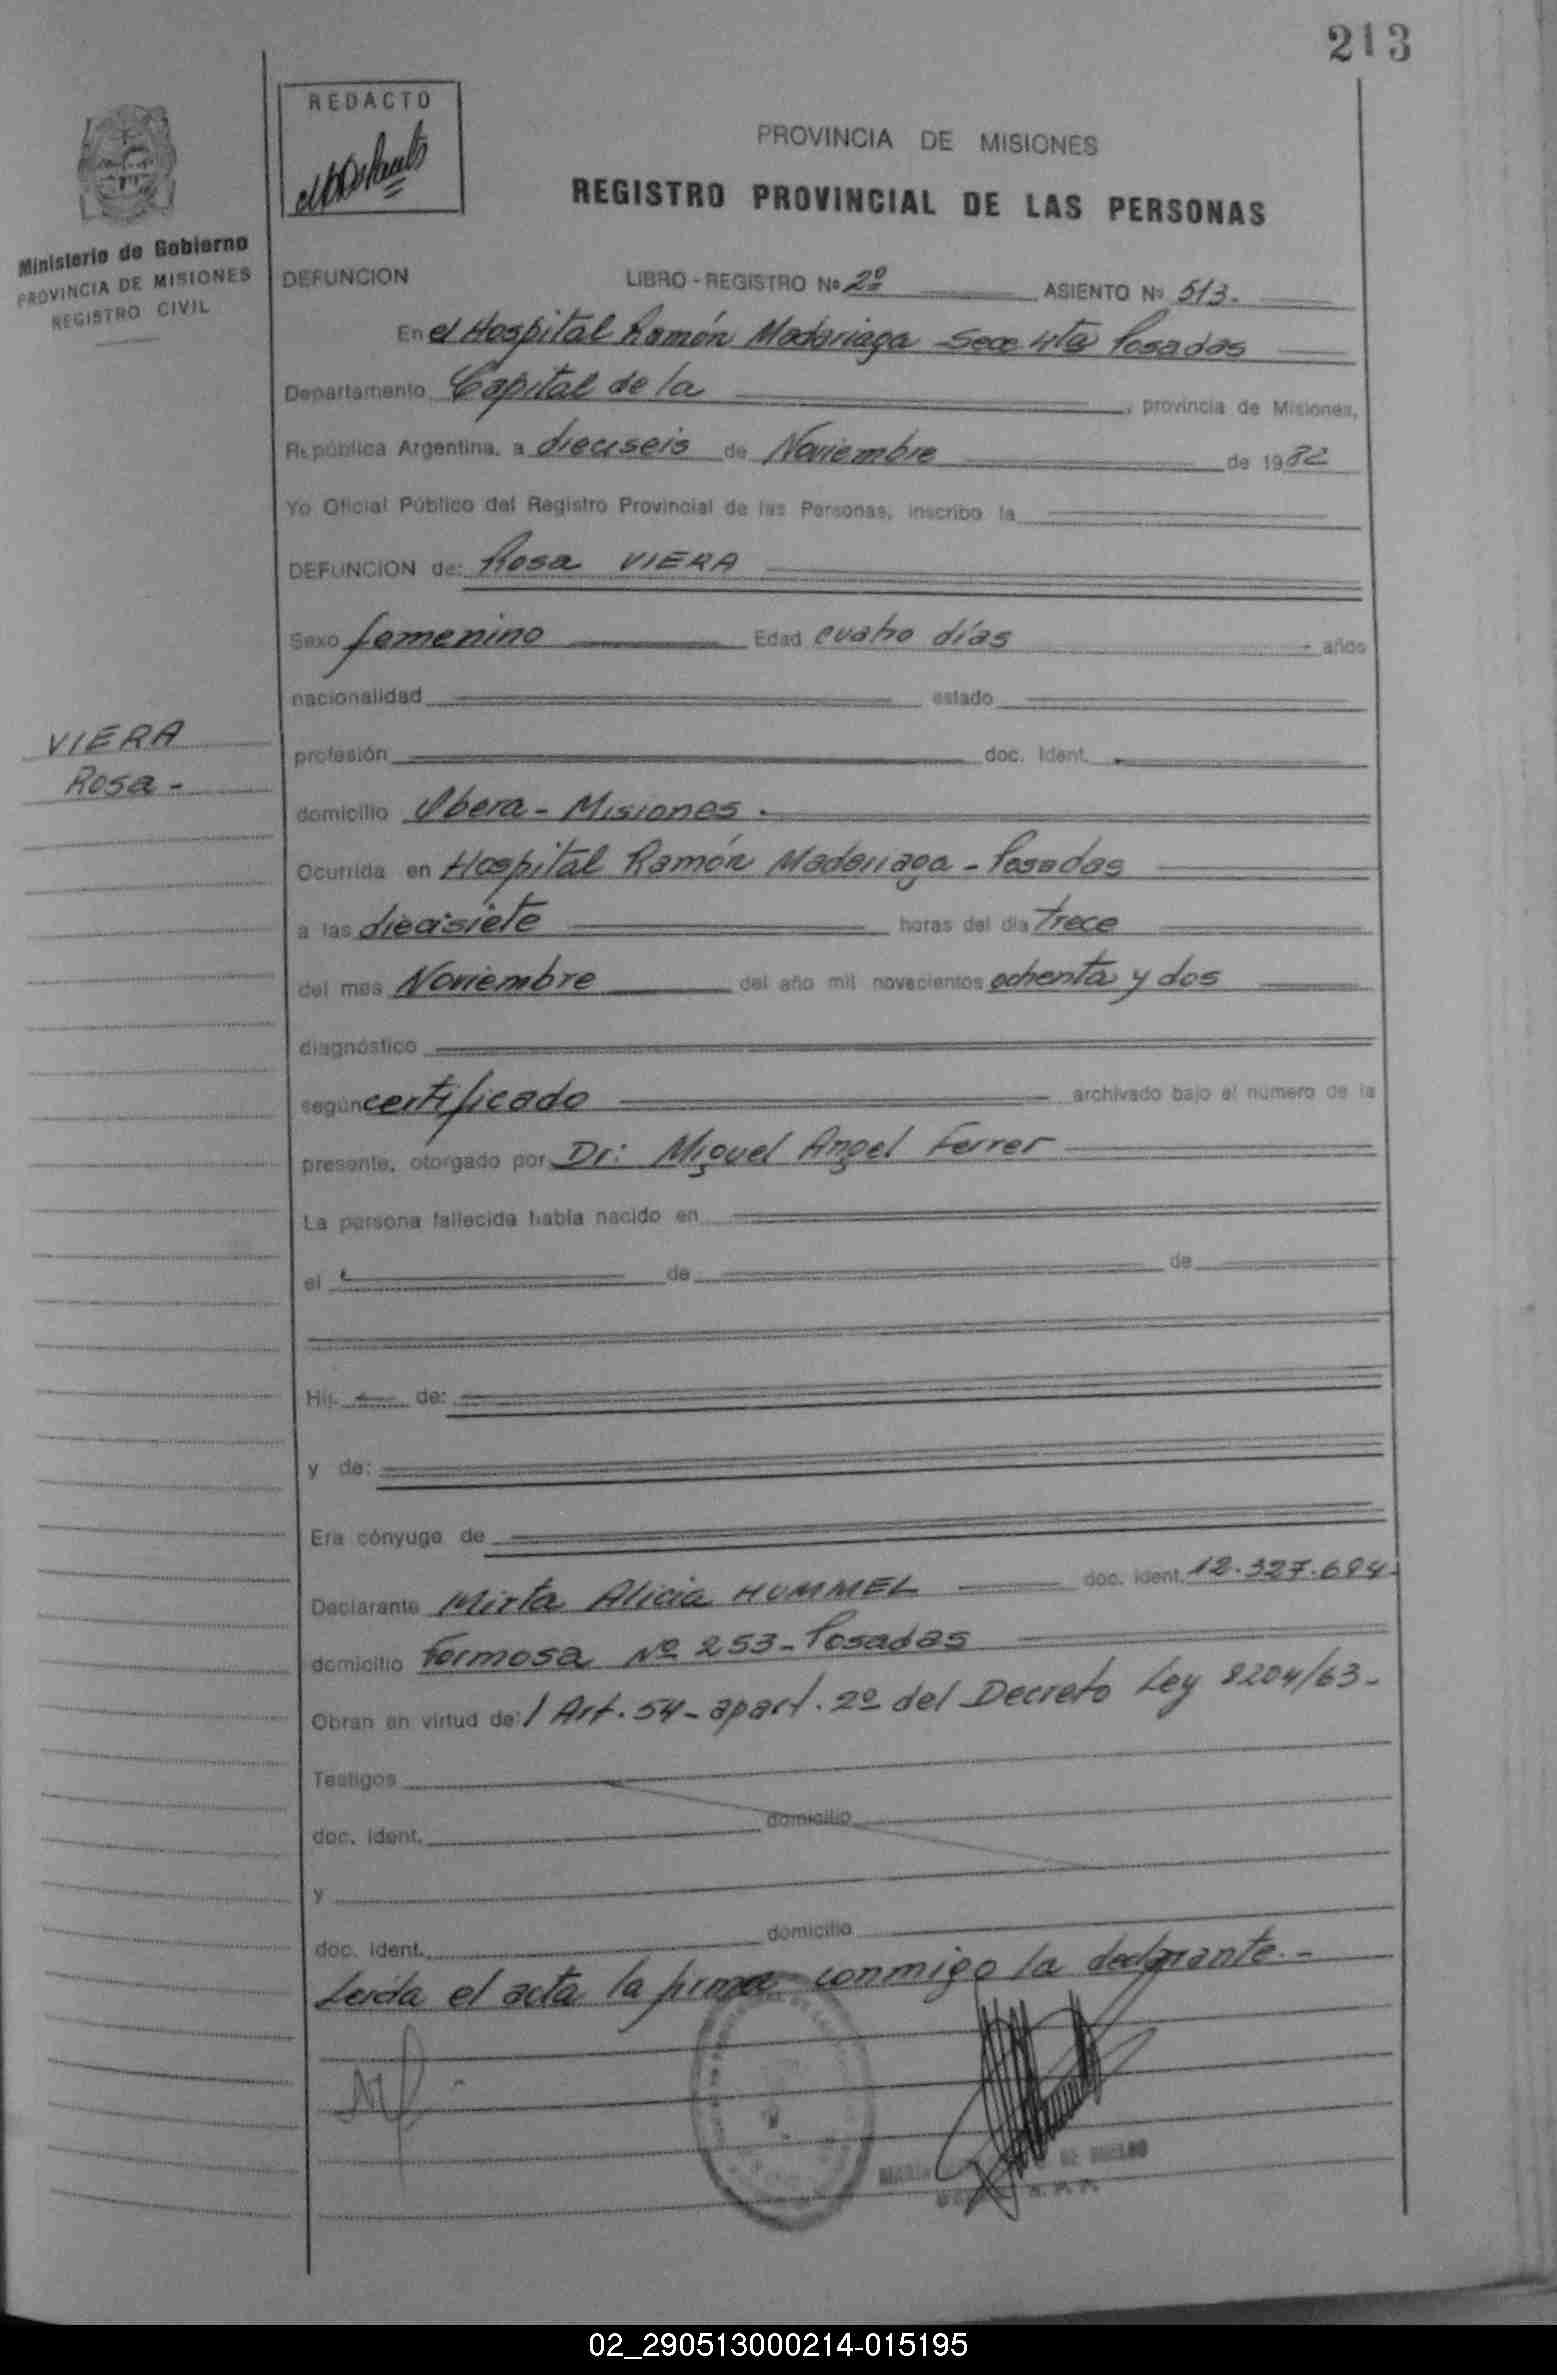 213
REDACTO
PROVINCIA DE MISIONES
REGISTRO PROVINCIAL DE LAS PERSONAS
Ministerio de Gobierno
PROVINCIA DE MISIONES
REGISTRO CIVIL
DEFUNCION LIBRO - REGISTRO Nº 2º ASIENTO Nº 513.-
En el Hospital Ramón Madariaga Secc 4ta Posadas
Departamento Capital de la , provincia de Misiones,
República Argentina, a dieciseis de Noviembre de 1982
Yo Oficial Público del Registro Provincial de las Personas, inscribo la
DEFUNCION de: Rosa VIERA
Sexo femenino Edad cuatro días años
nacionalidad estado
VIERA
Rosa -
profesión doc. Ident.
domicilio Obera - Misiones.
Ocurrida en Hospital Ramón Madariaga - Posadas
a las diecisiete horas del día trece
del mes Noviembre del año mil novecientos ochenta y dos
diagnóstico
según certificado archivado bajo el número de la
presente, otorgado por Dr: Miguel Angel Ferrer
La persona fallecida había nacido en
el de de
Hij de:
y de:
Era cónyuge de
Declarante Mirta Alicia HUMMEL doc. ident. 12.327.694-
domicilio Formosa Nº 253 - Posadas
Obran en virtud de: / Art. 54 - apart. 2º del Decreto Ley 8204/63 -
Testigos
doc. Ident. domicilio
y
doc. Ident. domicilio
Leída el acta la firma conmigo la declarante.-
02_290513000214-015195